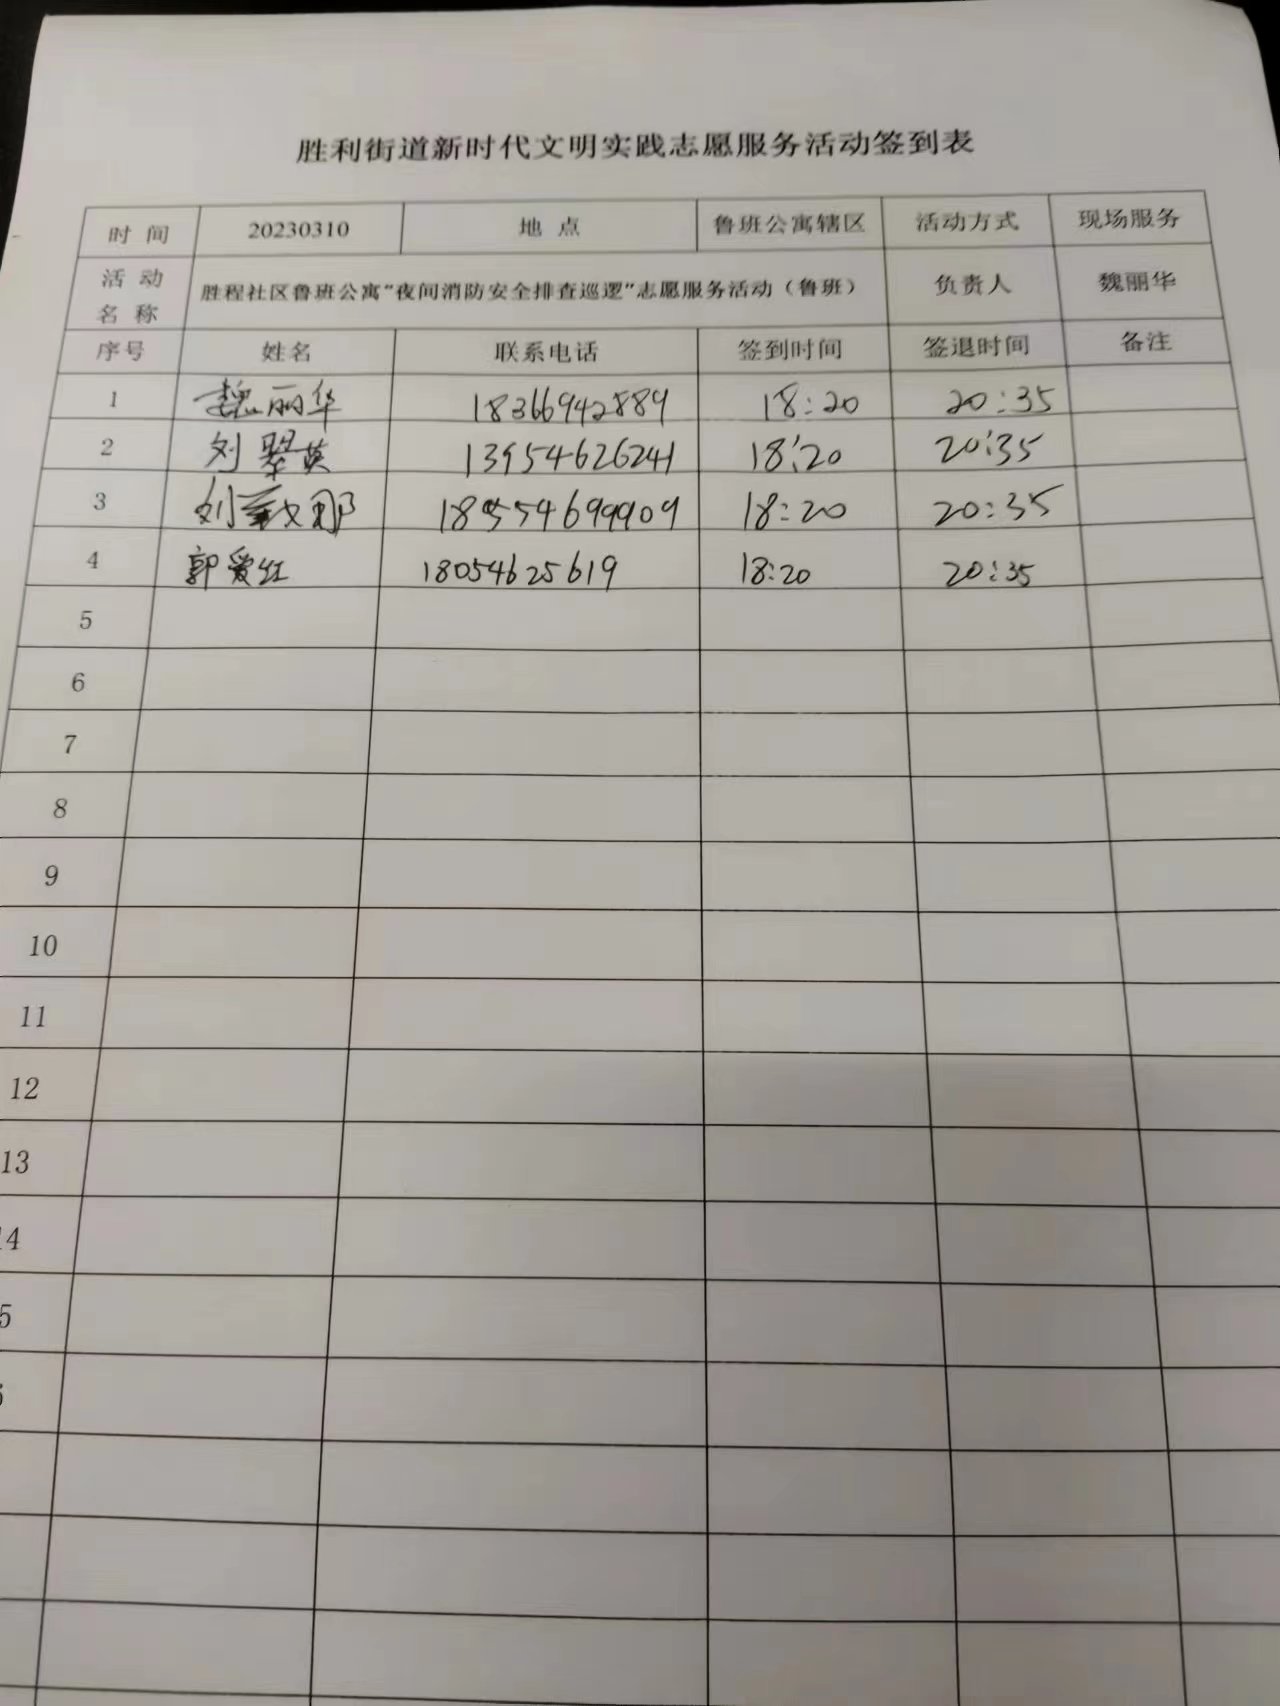 胜利街道新时代文明实践志愿服务活动签到表
时 间 20230310 地 点 鲁班公寓辖区 活动方式 现场服务
活 动 名 称 胜程社区鲁班公寓"夜间消防安全排查巡逻"志愿服务活动（鲁班） 负责人 魏丽华
序号 姓名 联系电话 签到时间 签退时间 备注
1 魏丽华 18366942889 18:20 20:35
2 刘翠英 13954626241 18:20 20:35
3 刘 18554699909 18:20 20:35
4 郭爱红 18054625619 18:20 20:35
5
6
7
8
9
10
11
12
13
4
5